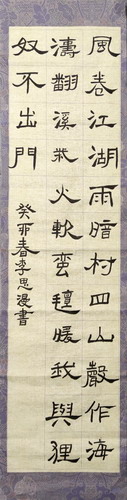 風卷江湖雨暗村四山聲作海
濤翻溪柴火軟蛮氊暖我與狸
奴不出門
癸卯春李思漫書